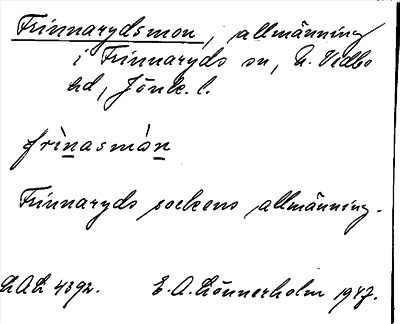 Frinnarydsmon, allmänning
i Frinnaryds sn, N. Vedbo
hd, Jönk. l.
frìnasmón
Frinnaryds sockens allmänning.
LAL 4392. E. A. Lönnerholm 1947.